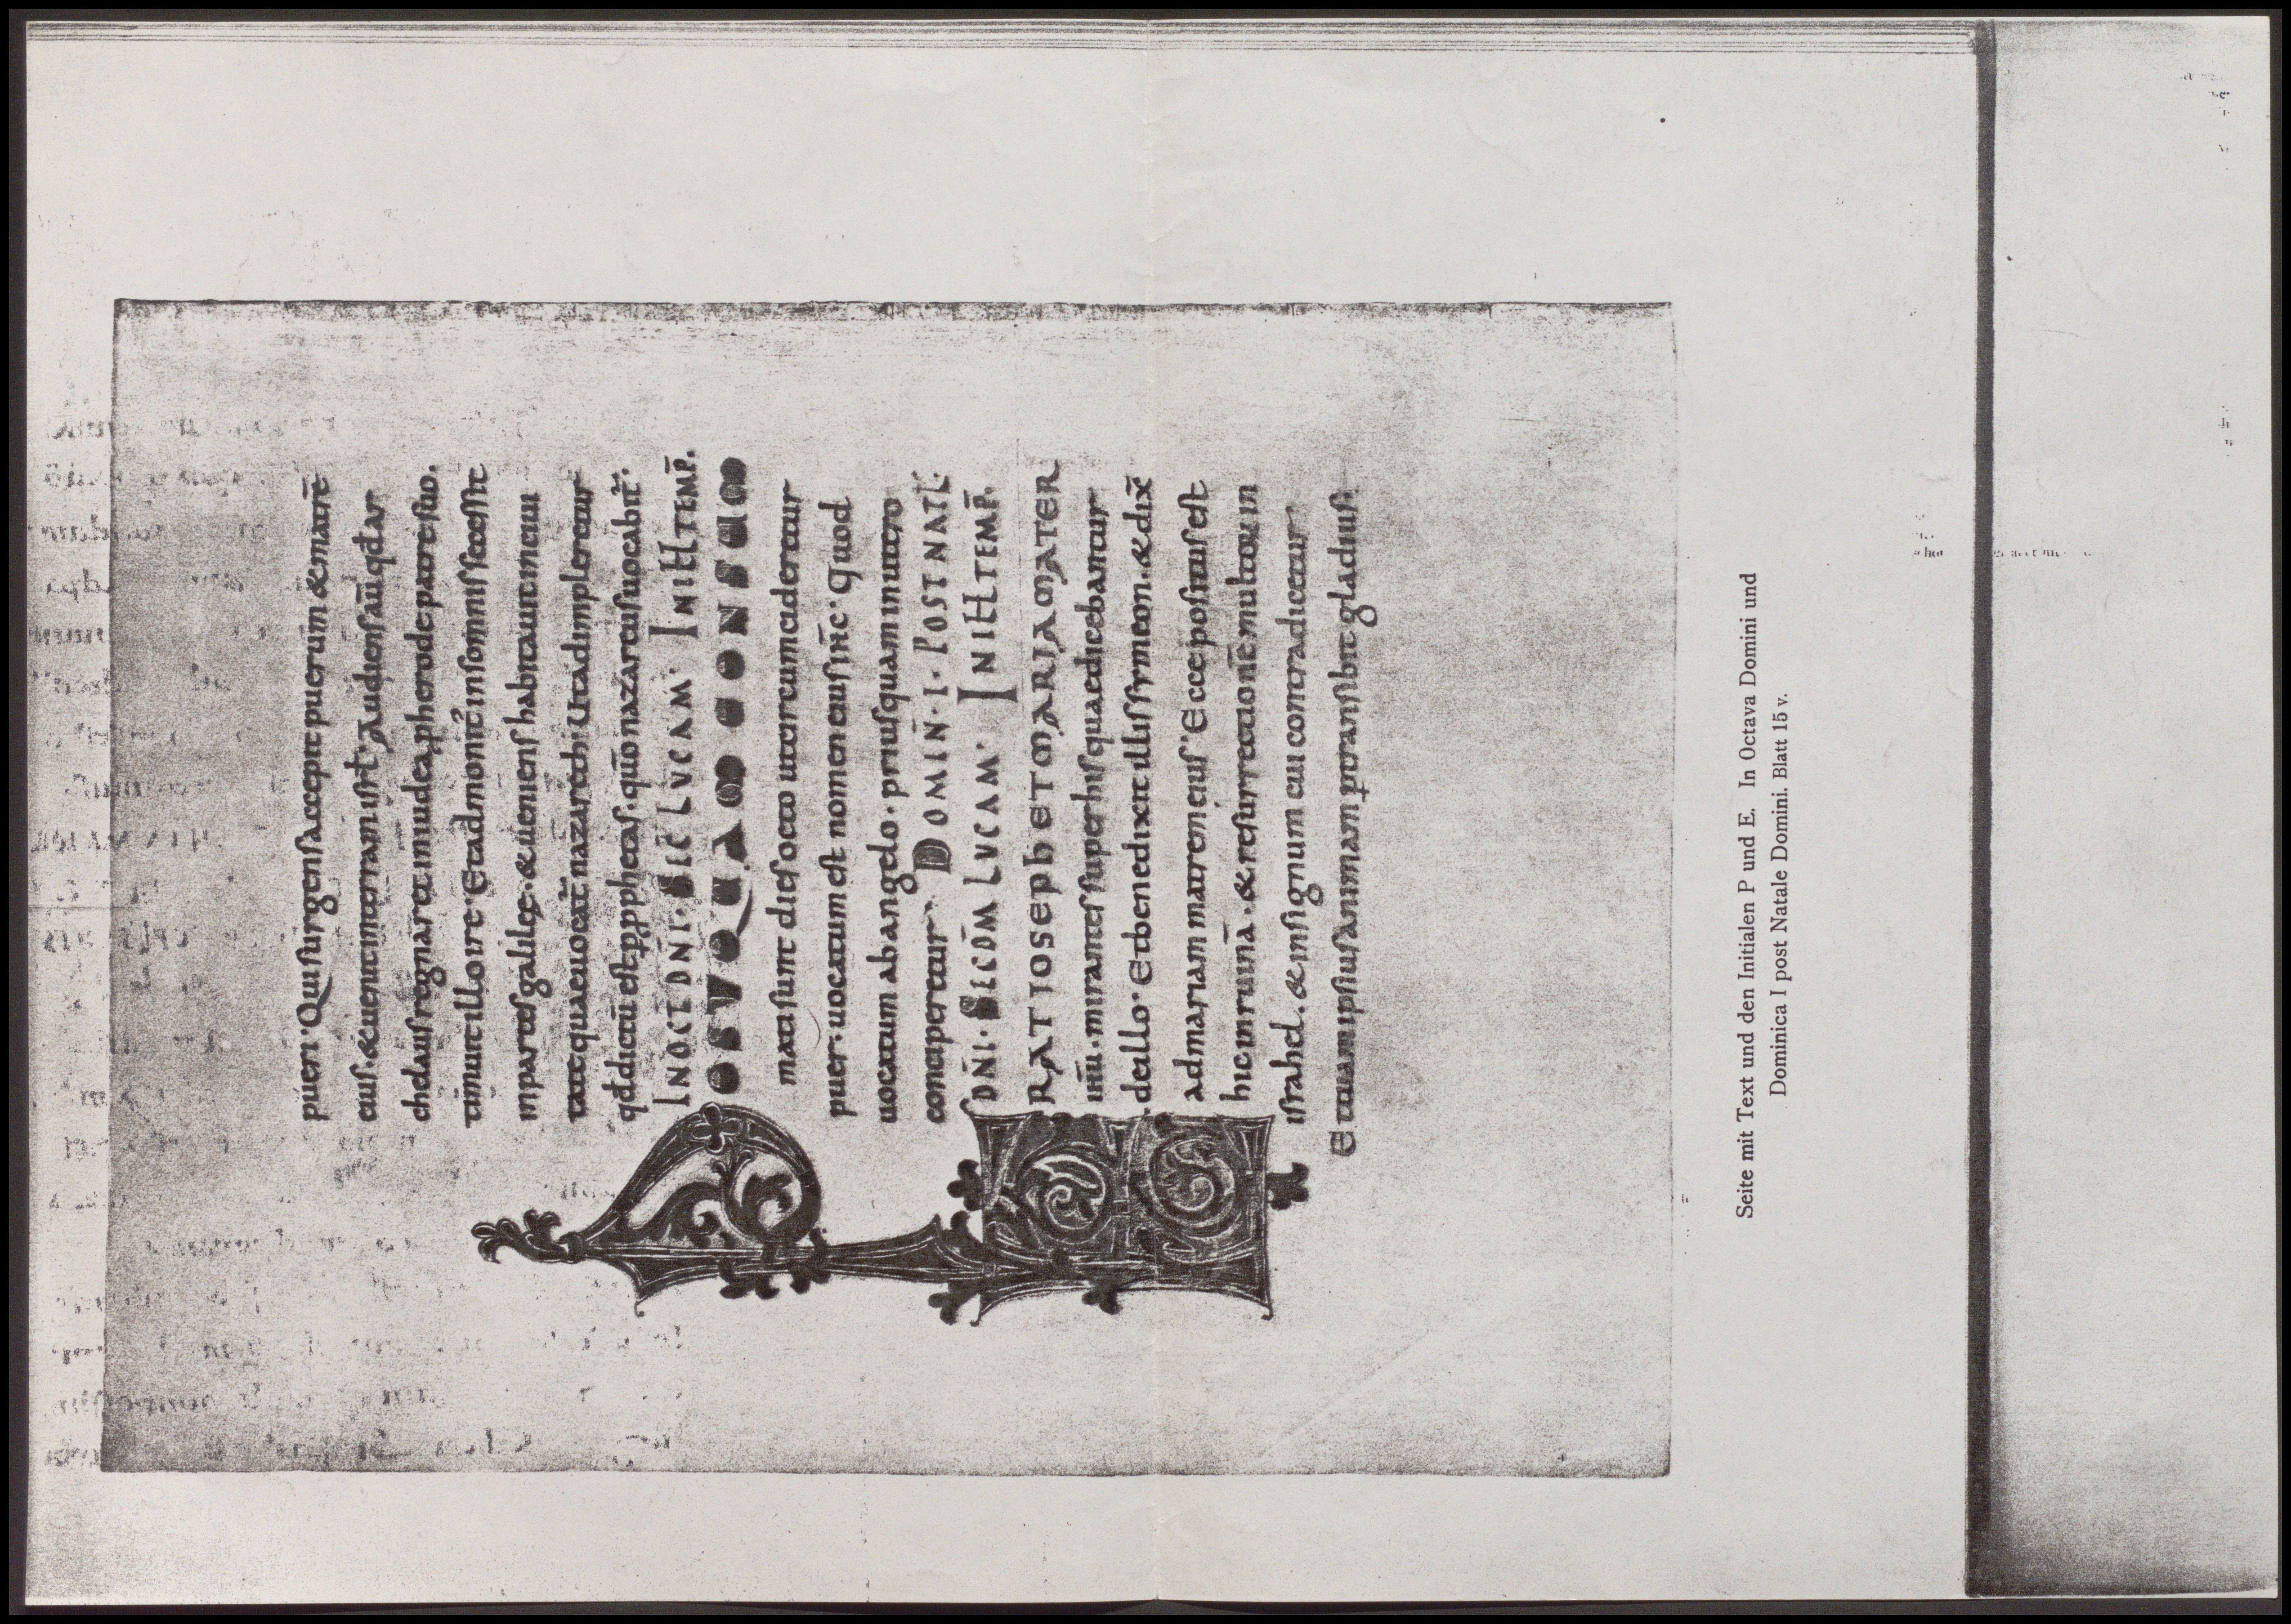 pueri· Qui surgens accepit puerum & matrē
eius· & uenit in terram isrl̄· Audiens aū qd ar
chelaus regnaret in iudea p herode patre suo·
timuit illo ire· Et admonit' in somnis secessit
in partes galileę· & ueniens habitauit in ciui
tate quae uocat̄ nazareth· Ut adimpleretur
qd dictū est p pphetas· quō nazareus uocabit̄·
IN OCT DN̄I· SEC̄ LVCAM· IN ILL TEMP̄·
POSTQUAM CONSUM
mati sunt dies octo ut circumcideretur
puer· uocatum est nomen eius ih̄c· Quod
uocatum ab angelo· priusquam in utero
conciperetur· DOMIN̄·I· POST NATL̄·
DN̄I· SECD̄M LVCAM· IN ILL TEMP̄·
ERAT IOSEPH ET MARIA MATER
ih̄u· mirantes super his quae dicebantur
de illo· Et benedixit illis symeon· & dix̄
ad mariam matrem eius· Ecce positus est
hic in ruinā· & resurrectionē multorum in
israhel· & in signum cui contradicetur·
Et tuam ipsius animam ptransibit gladius·
Seite mit Text und den Initialen P und E. In Octava Domini und
Dominica I post Natale Domini. Blatt 15 v.